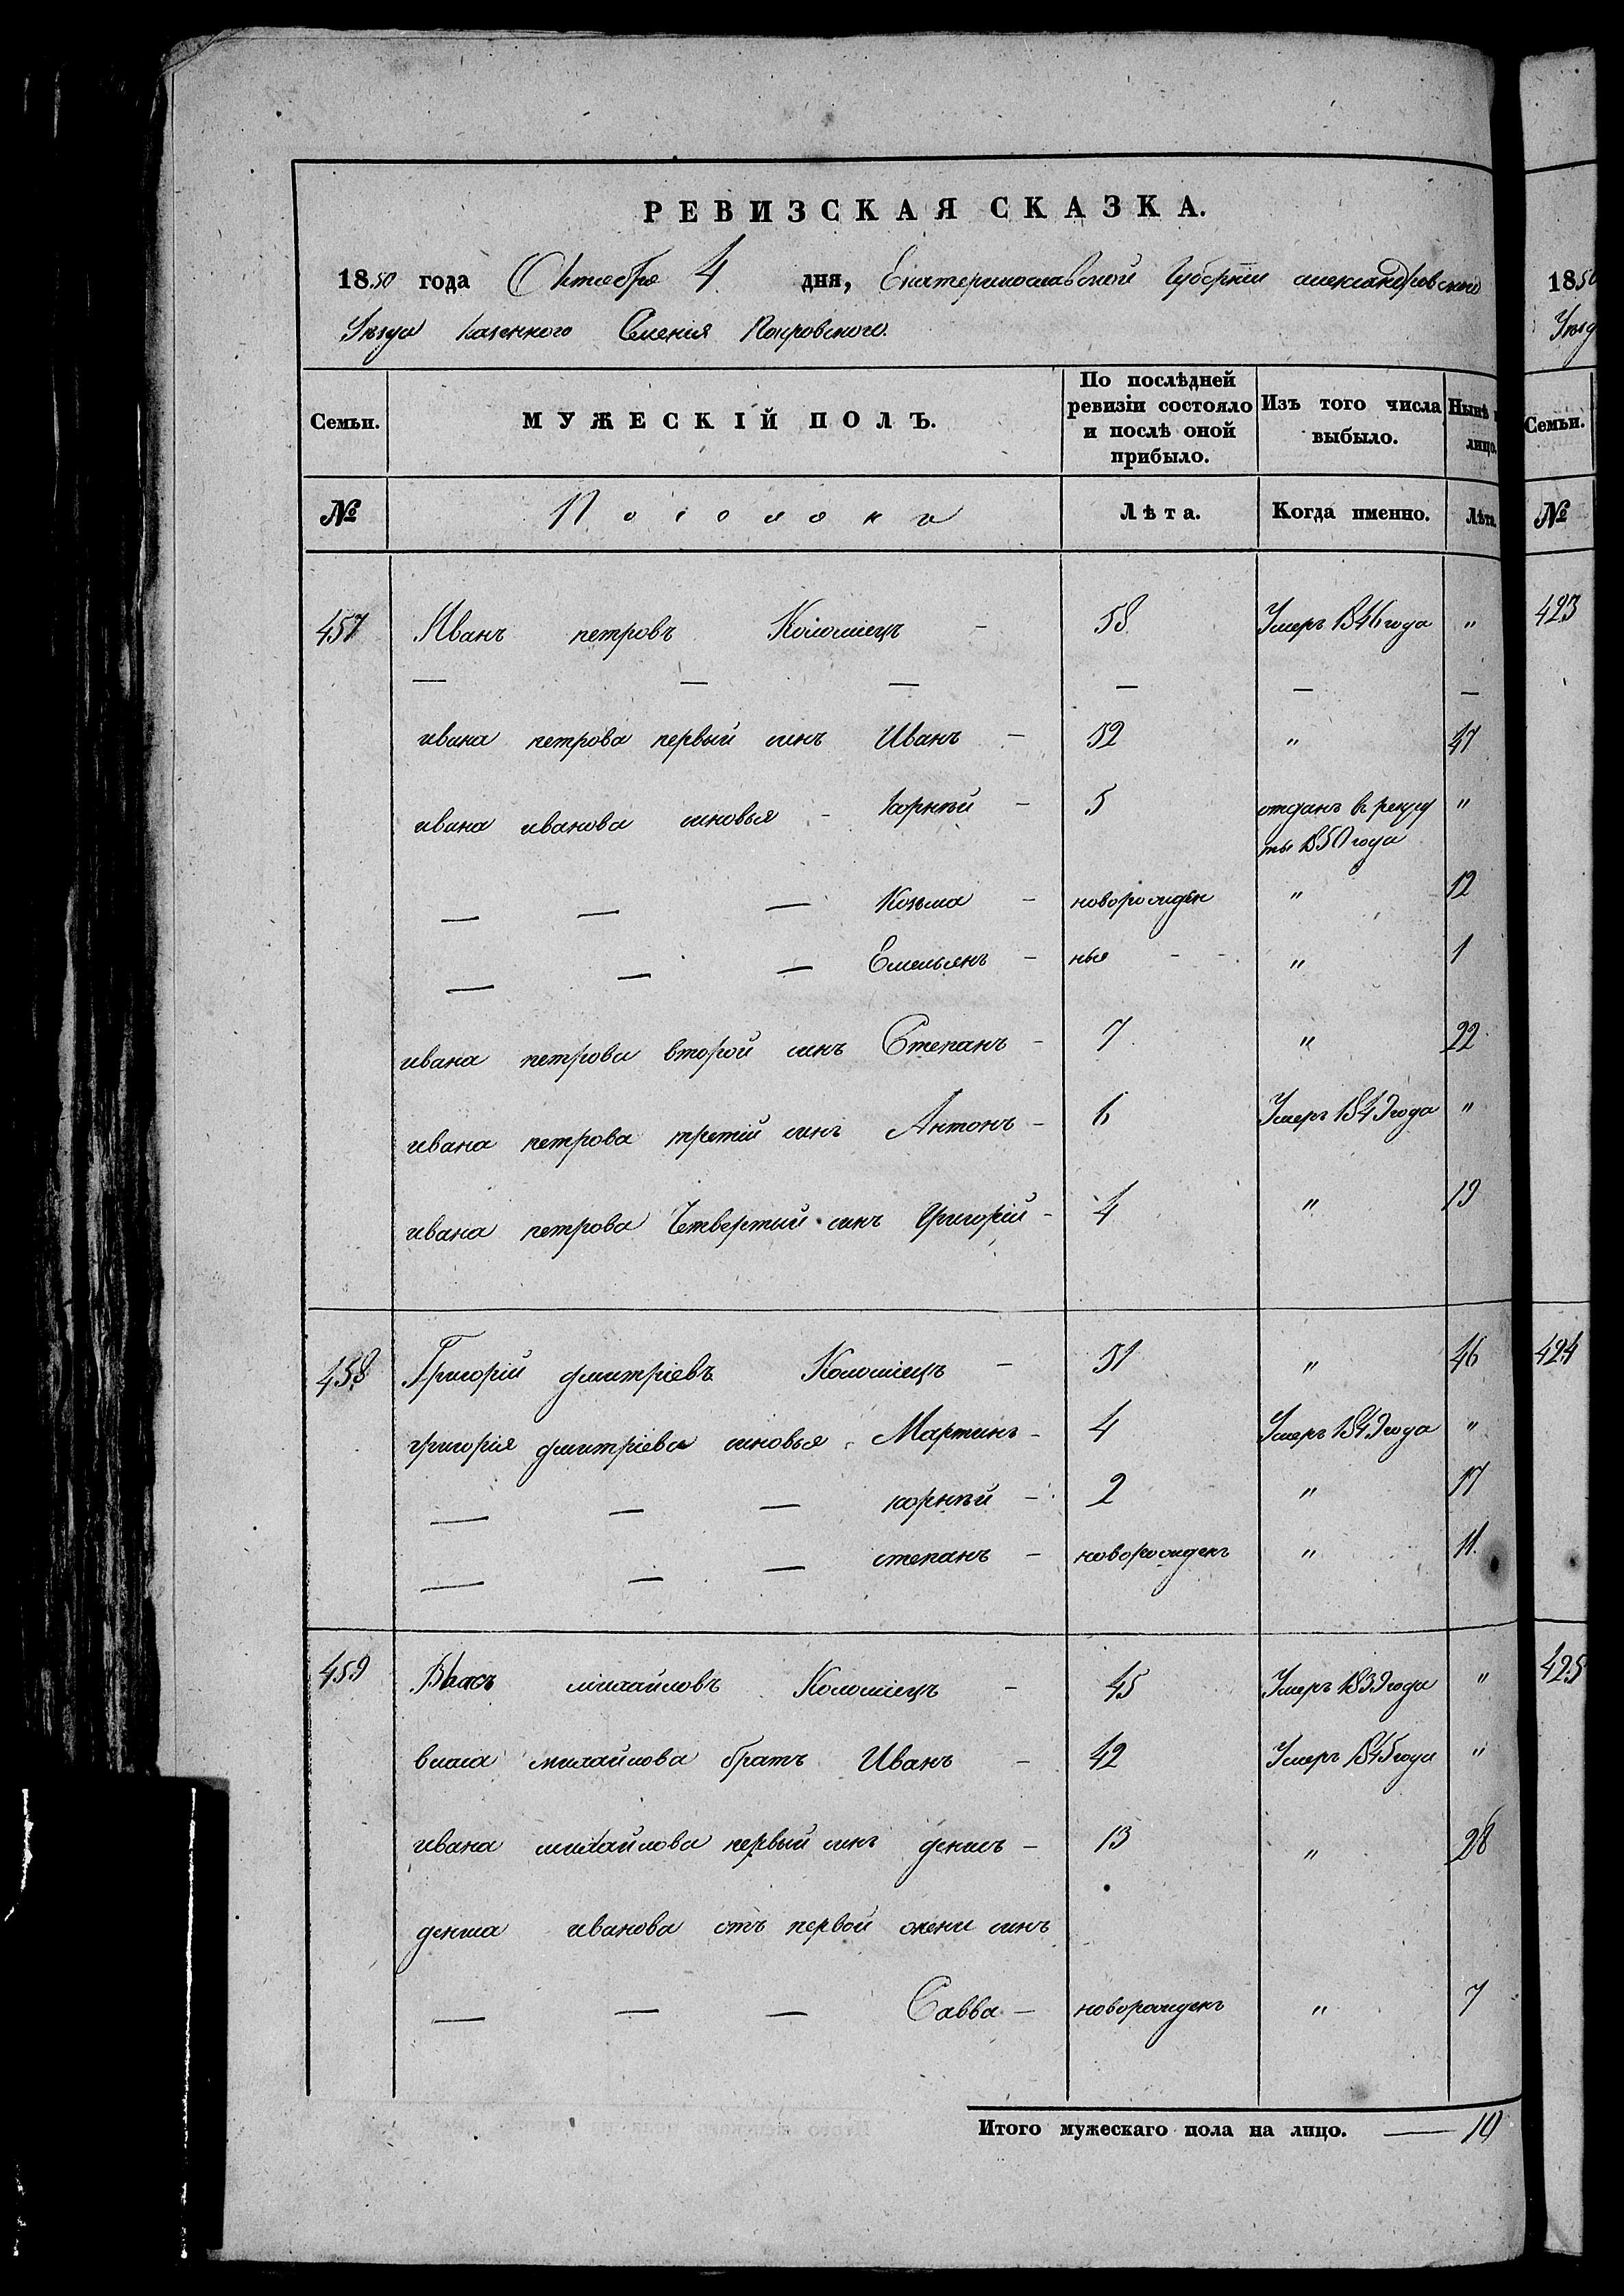 РЕВИЗСКАЯ СКАЗКА.
1850 года Октября 4 дня, Екатеринославской Губерніи александровского
Уезда казенного Селенія Покровского.
Семьи. МУЖЕСКІЙ ПОЛЪ. По послѣдней ревизіи состояло и послѣ оной прибыло. Изъ того числа выбыло. Нынѣ лицо.
№ Лѣта. Когда именно. Лѣта.
457 Иванъ петровъ Коломіецъ - 58 Умеръ 1846 года "
— — — — — —
ивана петрова первый синъ Иванъ - 32 " 47
ивана иванова синовья - Корнѣй - 5 отданъ в рекру "
ты 1850 года
— — — Козьма - новорожден " 12
— — — Емельянъ - ные - - " 1
ивана петрова второй синъ Степанъ - 7 " 22
ивана петрова третій синъ Антонъ - 6 Умеръ 1849 года "
ивана петрова Четвертый синъ Григорій - 4 " 19
458 Григорій дмитріевъ Коломіецъ - 31 " 46
григорія дмитріева синовья Мартинъ - 4 Умеръ 1849 года "
— — — корнѣй - 2 " 17
— — — степанъ - новорожденъ " 11
459 Власъ михайловъ Коломіецъ - 45 Умеръ 1839 года "
власа михайлова братъ Иванъ - 42 Умеръ 1845 года "
ивана михайлова первый синъ денисъ - 13 " 28
дениса иванова отъ первой жени синъ
— — — Савва - новорожденъ " 7
Итого мужескаго пола на лицо. — 10
1850
Семьи.
№
423
424
425